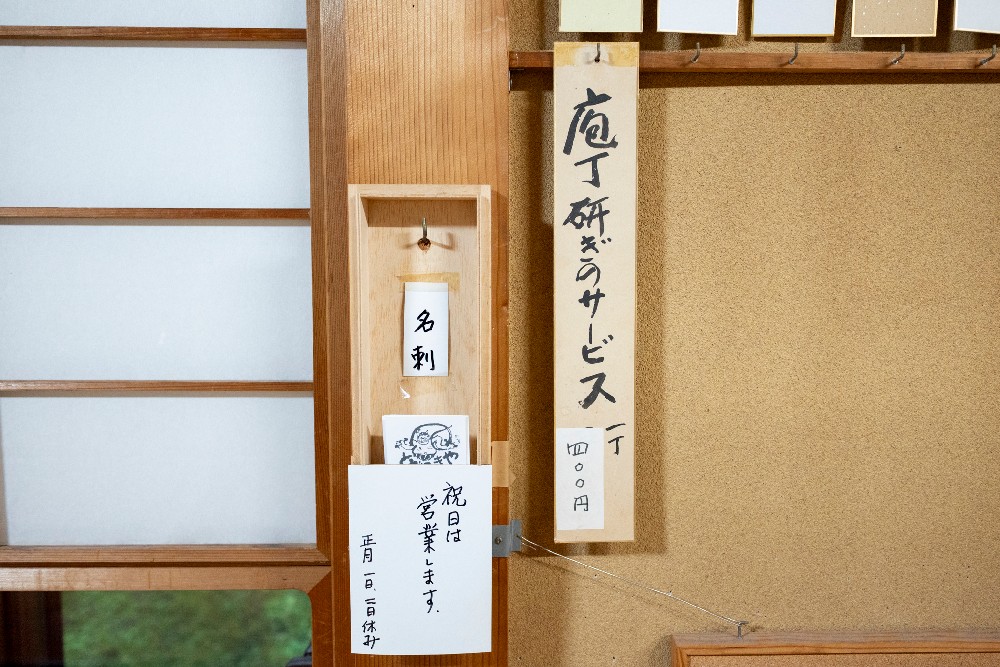 庖丁研ぎのサービス
一丁
四〇〇円
名刺
祝日は
営業します.
正月 一日、二日休み